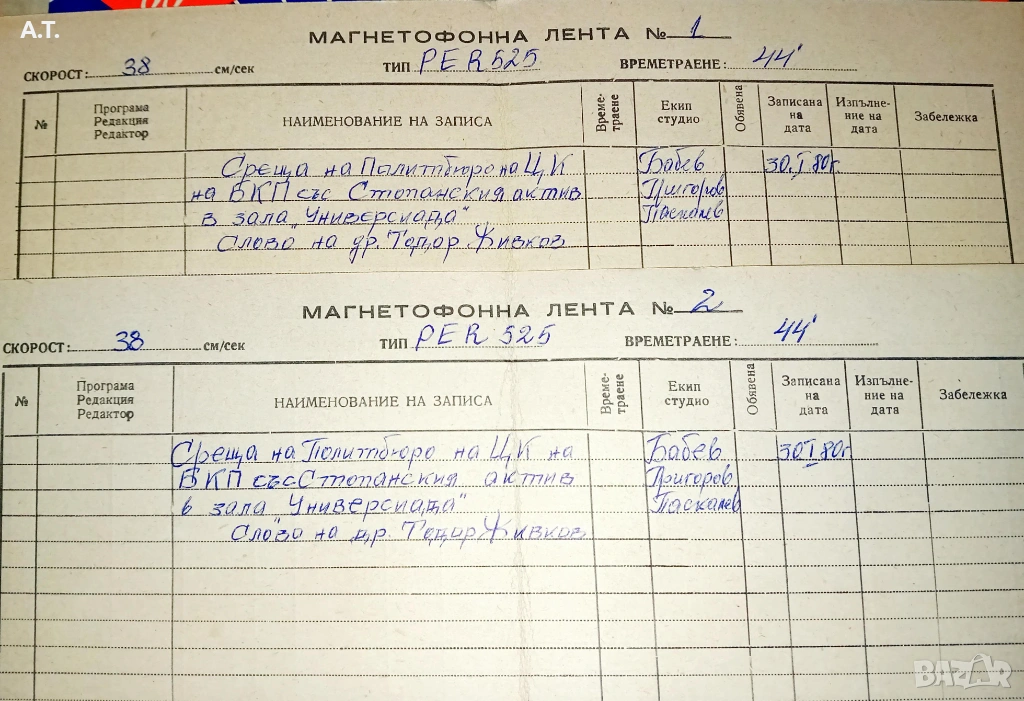 А.Т.
МАГНЕТОФОННА ЛЕНТА № 1
СКОРОСТ: 38 см/сек ТИП PER525 ВРЕМЕТРАЕНЕ: 44'
№ Програма Редакция Редактор НАИМЕНОВАНИЕ НА ЗАПИСА Време-траене Екип студио Обявена Записана на дата Изпълне-ние на дата Забележка
Среща на Политбюро на ЦК Бабев 30.I.80г.
на БКП със Стопанския актив Григоров
в зала "Универсиада" Паскалев
Слово на др. Тодор Живков
МАГНЕТОФОННА ЛЕНТА № 2
СКОРОСТ: 38 см/сек ТИП PER 525 ВРЕМЕТРАЕНЕ: 44'
№ Програма Редакция Редактор НАИМЕНОВАНИЕ НА ЗАПИСА Време-траене Екип студио Обявена Записана на дата Изпълне-ние на дата Забележка
Среща на Политбюро на ЦК на Бабев 30.I.80г.
БКП със Стопанския актив Григоров
в зала "Универсиада" Паскалев
Слово на др. Тодор Живков
BAZAR